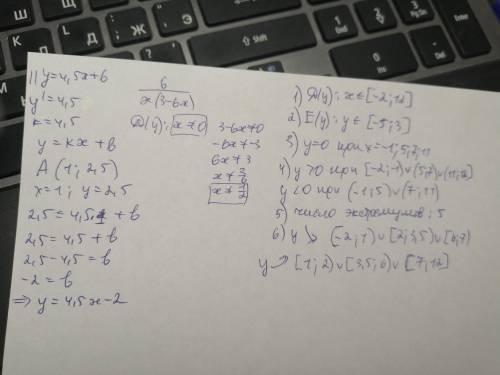 || y=4,5x+6
y'=4,5
k=4,5
y=kx+b
A(1; 2,5)
x=1; y=2,5
2,5=4,5·1+b
2,5=4,5+b
2,5-4,5=b
-2=b
=> y=4,5x-2
6
x(3-6x)
D(y): x≠0
3-6x≠0
-6x≠-3
6x≠3
x≠3/6
x≠1/2
1) D(y): x∈[-2;12]
2) E(y): y∈[-5;3]
3) y=0 при x=-1;5;7;11
4) y>0 при [-2;-1)∪(5;7)∪(11;12]
y<0 при (-1;5)∪(7;11)
5) число экстремумов: 5
6) y↘ [-2;1)∪[2;3,5)∪[6;7)
y↗ [1;2)∪[3,5;6)∪[7;12]
Shift
Ctrl